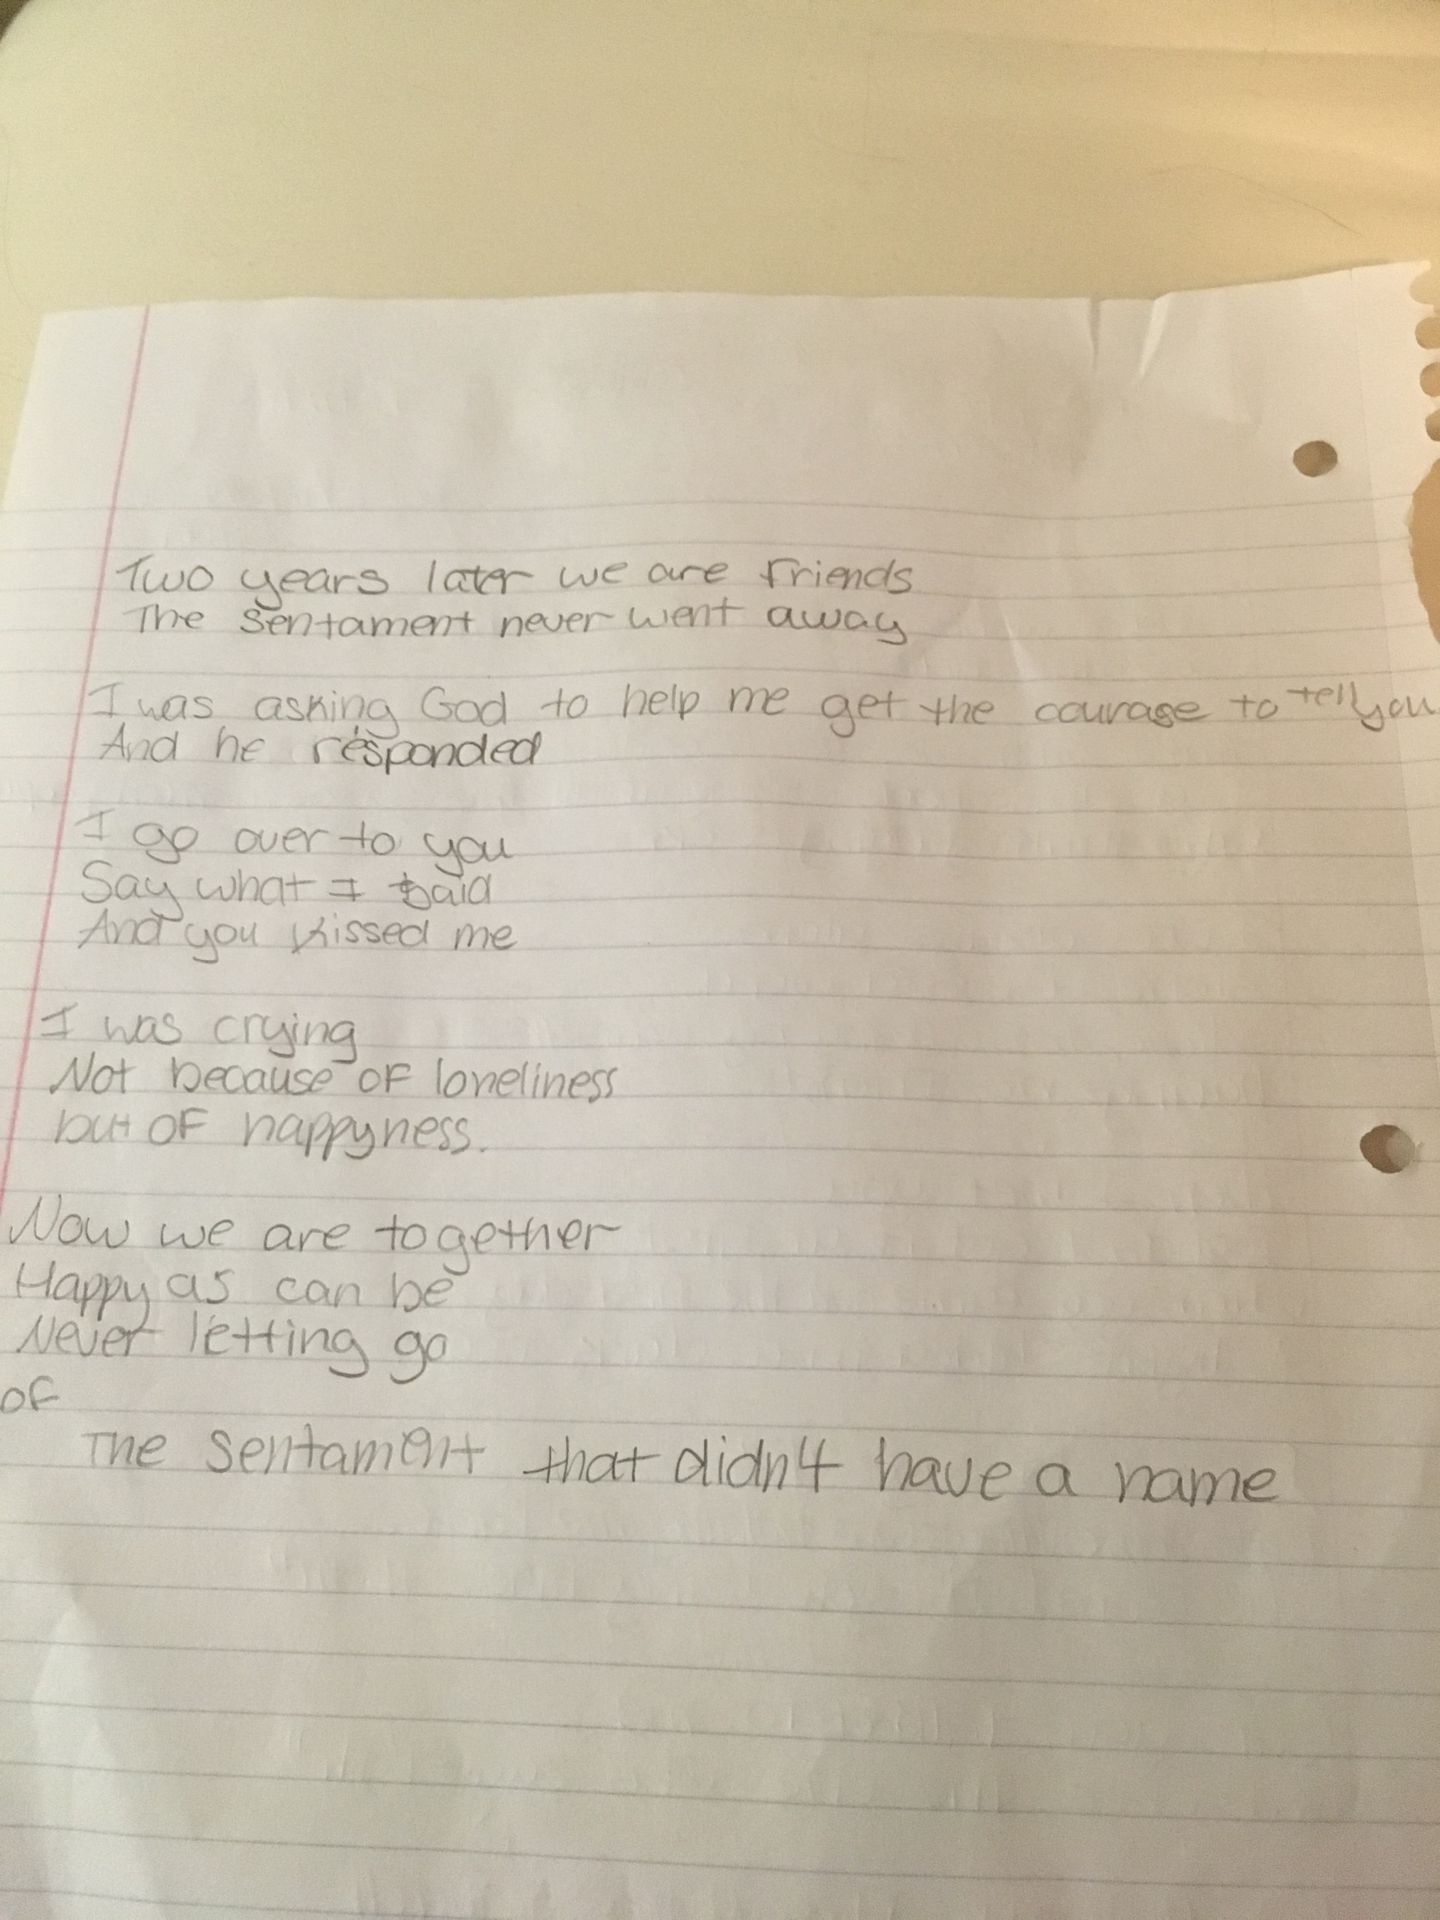 Two years later we are friends
The sentament never went away
I was asking God to help me get the courage to tell you
And he responded
I go over to you
Say what I said
And you kissed me
I was crying
Not because of loneliness
but of happyness.
Now we are together
Happy as can be
Never letting go
of
The sentament that didn't have a name